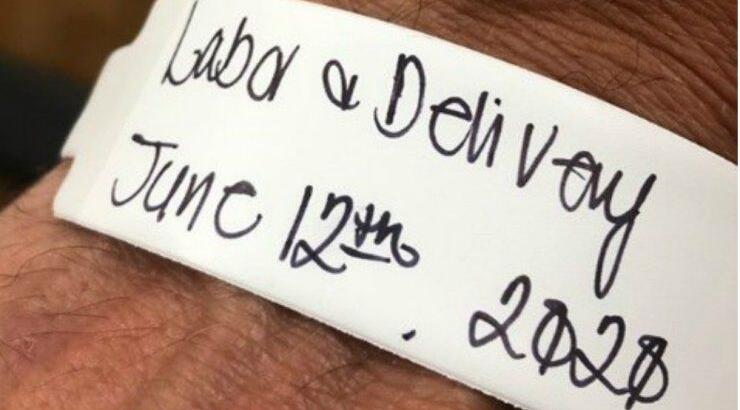 Labor & Delivery
June 12th, 2020